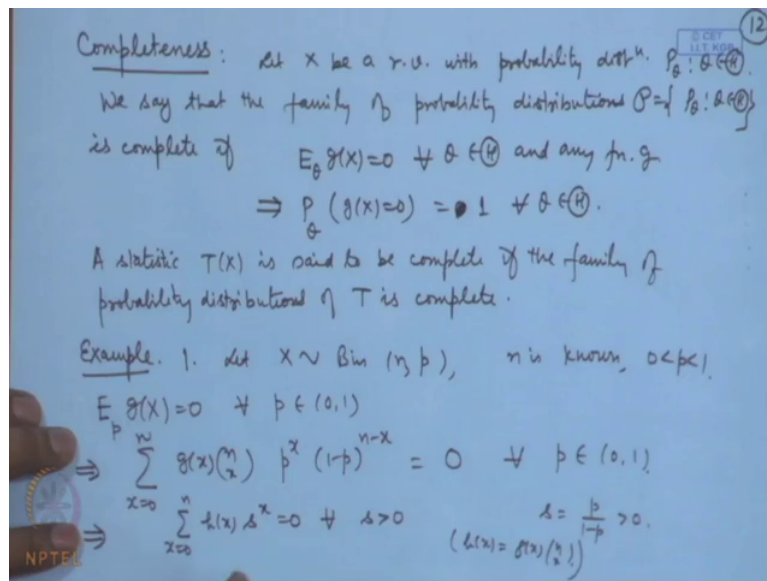 12
© CET
I.I.T. KGP
Completeness : Let X be a r.v. with probability distⁿ. P_θ : θ ∈ Ⓗ.
We say that the family of probability distributions 𝒫 = { P_θ : θ ∈ Ⓗ }
is complete if E_θ g(X) = 0 ∀ θ ∈ Ⓗ and any fn. g
⇒ P_θ (g(X)=0) = 1 ∀ θ ∈ Ⓗ.
A statistic T(X) is said to be complete if the family of
probability distributions of T is complete.
Example. 1. Let X ~ Bin (n, p), n is known, 0<p<1.
E_p g(X) = 0 ∀ p ∈ (0,1)
⇒ ∑_{x=0}^{n} g(x) (n x) p^x (1-p)^{n-x} = 0 ∀ p ∈ (0,1)
⇒ ∑_{x=0}^{n} h(x) s^x = 0 ∀ s>0 s = p/(1-p) >0.
(h(x) = g(x) (n x))
NPTEL